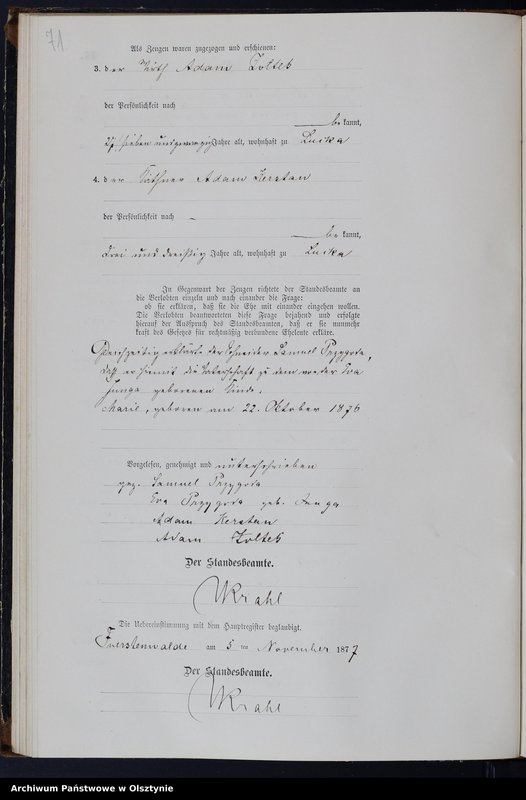 71
Als Zeugen waren zugezogen und erschienen:
3. der Wirth Adam Zolteb
der Persönlichkeit nach
be kannt,
27 sieben und zwanzig Jahre alt, wohnhaft zu Lucka
4. der Käthner Adam Kerstan
der Persönlichkeit nach –
be kannt,
drei und dreißig Jahre alt, wohnhaft zu Lucka
In Gegenwart der Zeugen richtete der Standesbeamte an
die Verlobten einzeln und nach einander die Frage:
ob sie erklären, daß sie die Ehe mit einander eingehen wollen.
Die Verlobten beantworteten diese Frage bejahend und erfolgte
hierauf der Ausspruch des Standesbeamten, daß er sie nunmehr
kraft des Gesetzes für rechtmäßig verbundene Eheleute erkläre.
Gleichzeitig erklärte der Schneider Samuel Przygoda,
daß er hiermit die Vaterschaft zu dem von der Eva
Junga geborenen Kinde,
Marie, geboren am 22. Oktober 1876
Vorgelesen, genehmigt und unterschrieben
gez. Samuel Przygoda
Eva Przygoda geb. Junga
Adam Kerstan
Adam Zolteb
Der Standesbeamte.
Krahl
Die Uebereinstimmung mit dem Hauptregister beglaubigt.
Fuerstenwalde am 5 ten November 1877
Der Standesbeamte.
Krahl
Archiwum Państwowe w Olsztynie